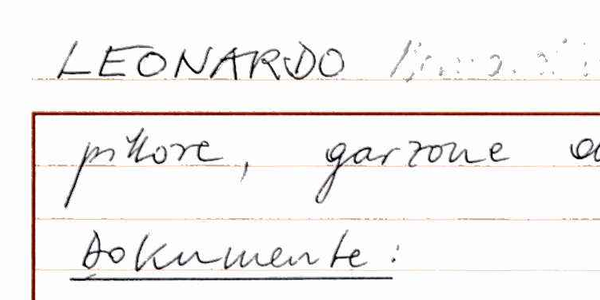 LEONARDO
pittore, garzone
Dokumente: